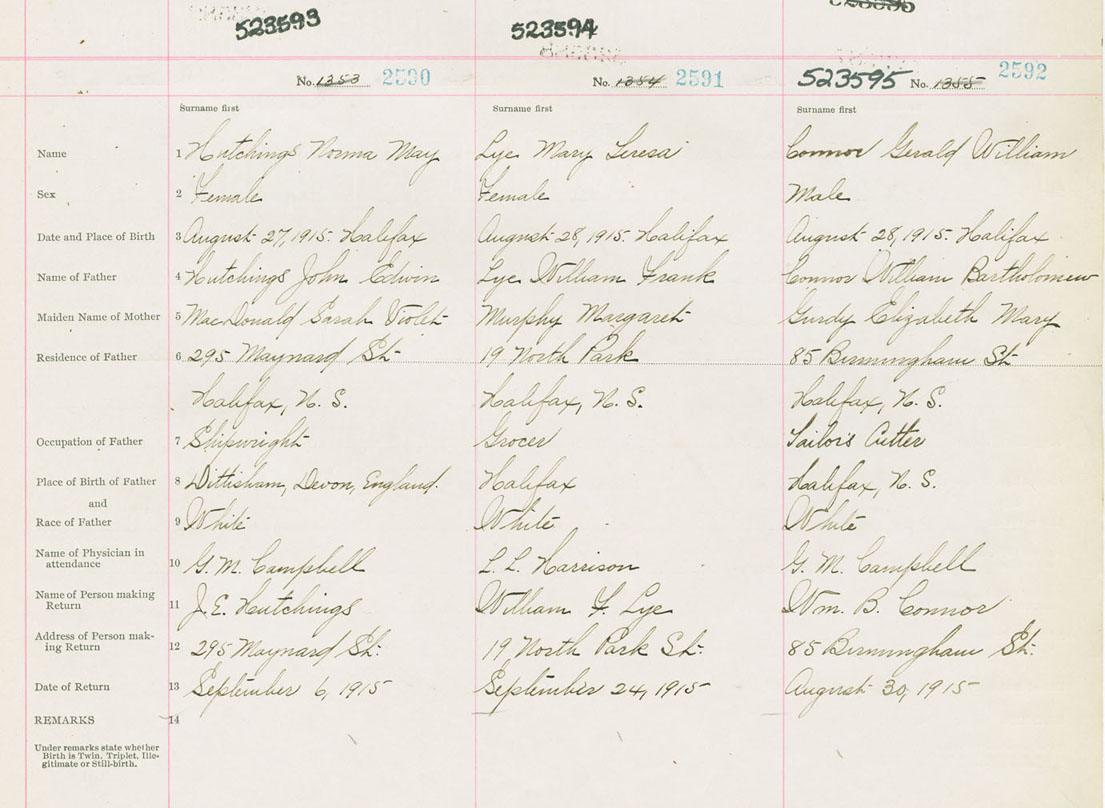 523593 523594
No. 1353 2590 No. 1354 2591 523595 No. 1355 2592
Surname first Surname first Surname first
Name 1 Hutchings Norma May Lye Mary Teresa Connor Gerald William
Sex 2 Female Female Male
Date and Place of Birth 3 August 27, 1915. Halifax August 28, 1915. Halifax August 28, 1915. Halifax
Name of Father 4 Hutchings John Edwin Lye William Frank Connor William Bartholomew
Maiden Name of Mother 5 MacDonald Sarah Violet Murphy Margaret Gurdy Elizabeth Mary
Residence of Father 6 295 Maynard St. 19 North Park 85 Birmingham St.
Halifax, N. S. Halifax, N. S. Halifax, N. S.
Occupation of Father 7 Shipwright Grocer Tailor's Cutter
Place of Birth of Father 8 Dittisham, Devon, England. Halifax Halifax, N. S.
and
Race of Father 9 White White White
Name of Physician in
attendance 10 G. M. Campbell L. L. Harrison G. M. Campbell
Name of Person making
Return 11 J. E. Hutchings William F. Lye Wm. B. Connor
Address of Person mak-
ing Return 12 295 Maynard St. 19 North Park St. 85 Birmingham St.
Date of Return 13 September 6, 1915 September 24, 1915 August 30, 1915
REMARKS 14
Under remarks state whether
Birth is Twin, Triplet, Ille-
gitimate or Still-birth.